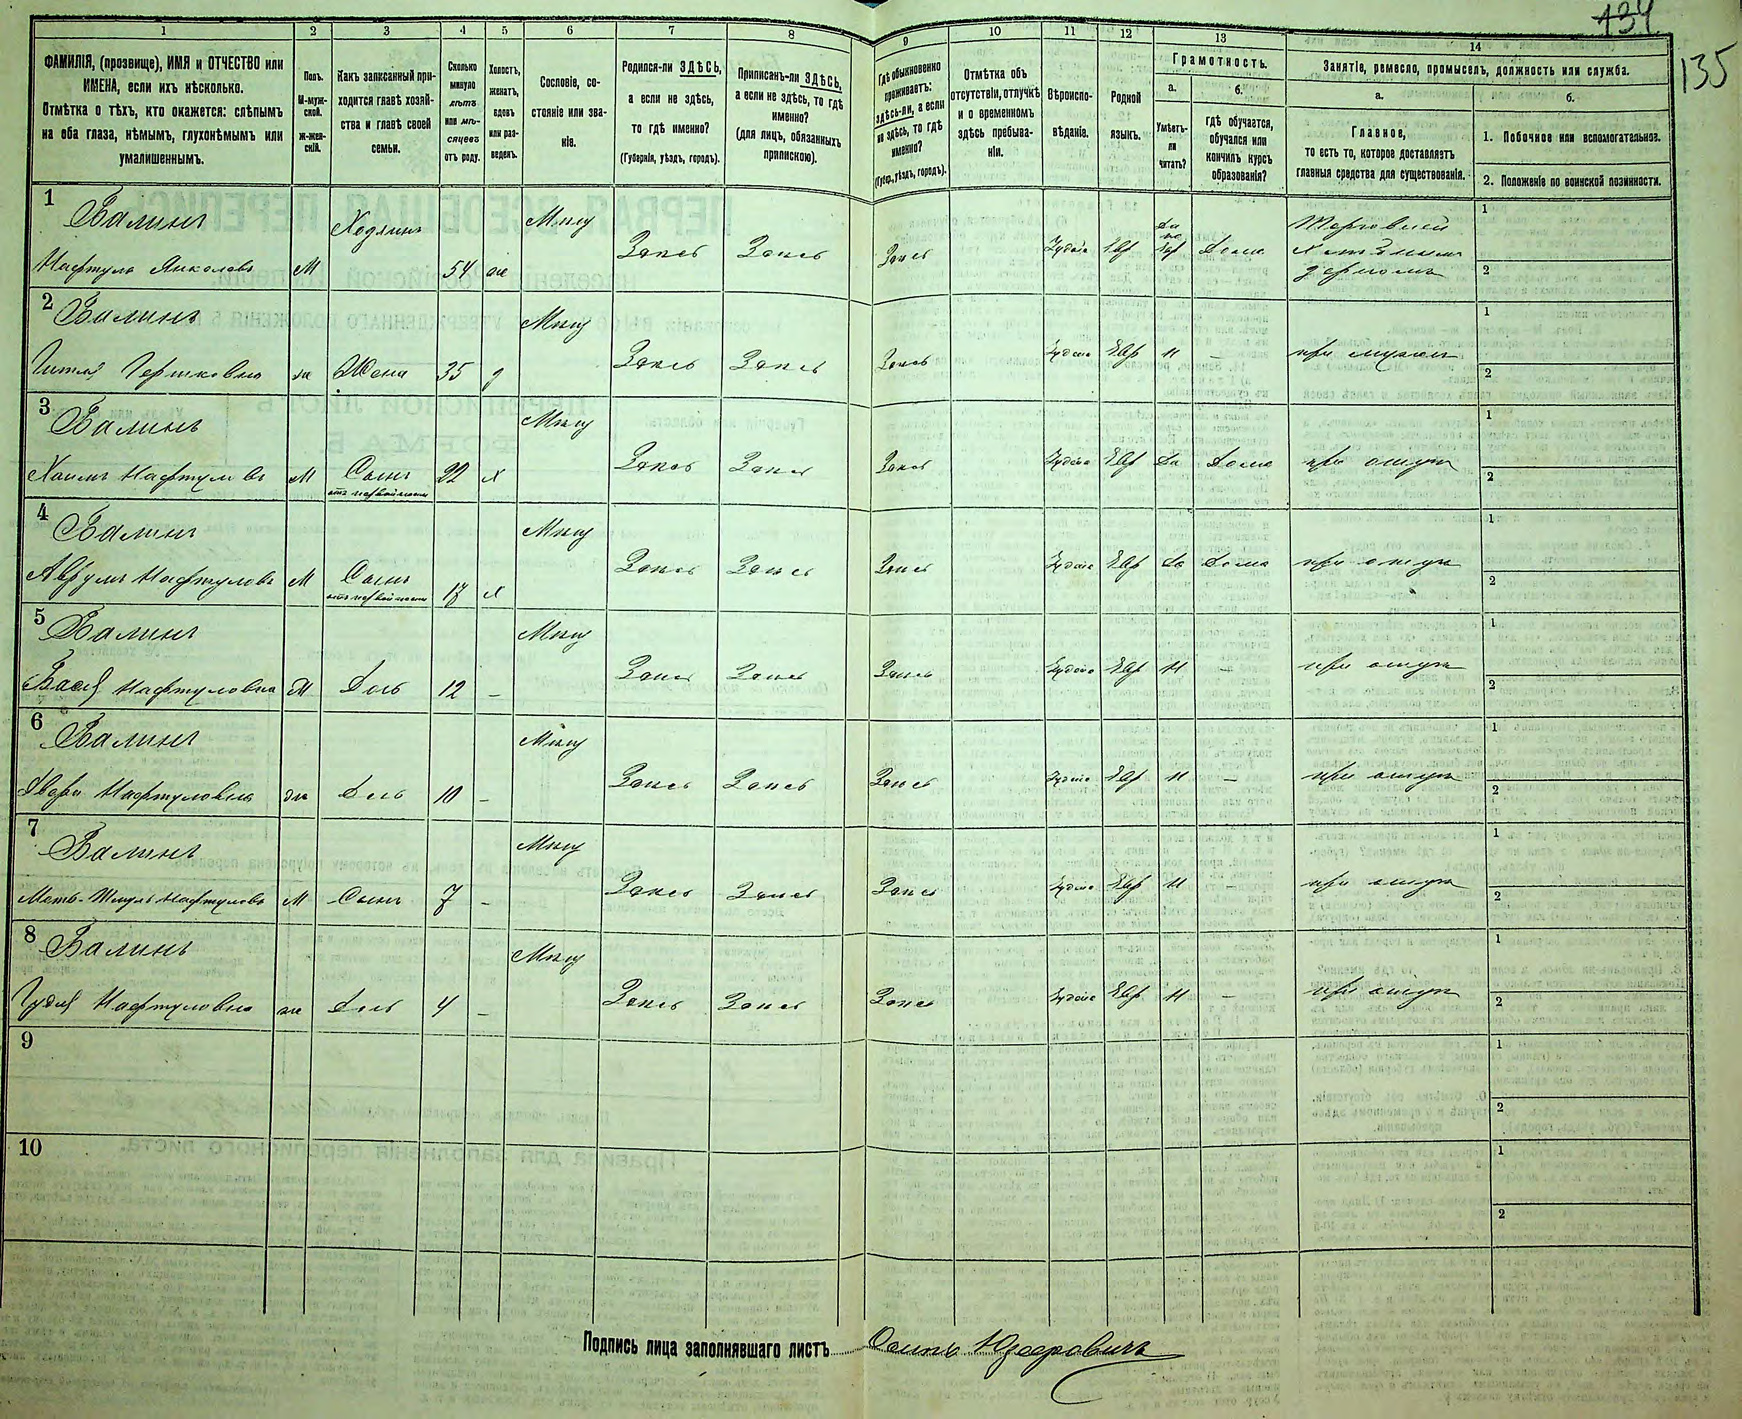 134
135
1
2
3
4
5
6
7
8
9
10
11
12
13
14
ФАМИЛІЯ, (прозвище), ИМЯ и ОТЧЕСТВО или
ИМЕНА, если ихъ нѣсколько.
Отмѣтка о тѣхъ, кто окажется: слѣпымъ
на оба глаза, нѣмымъ, глухонѣмымъ или
умалишеннымъ.
Полъ.
М-муж-
ской.
ж-жен-
скій.
Какъ записанный при-
ходится главѣ хозяй-
ства и главѣ своей
семьи.
Сколько
минуло
лѣтъ
или мѣ-
сяцевъ
отъ роду.
Холостъ,
женатъ,
вдовъ
или раз-
веденъ.
Сословіе, со-
стояніе или зва-
ніе.
Родился-ли ЗДѢСЬ,
а если не здѣсь,
то гдѣ именно?
(Губернія, уѣздъ, городъ).
Приписанъ-ли ЗДѢСЬ,
а если не здѣсь, то гдѣ
именно?
(для лицъ, обязанныхъ
припискою).
Гдѣ обыкновенно
проживаетъ:
здѣсь-ли, а если
не здѣсь, то гдѣ
именно?
(Губер., уѣздъ, городъ).
Отмѣтка объ
отсутствіи, отлучкѣ
и о временномъ
здѣсь пребыва-
ніи.
Вѣроиспо-
вѣданіе.
Родной
языкъ.
Грамотность.
а.
Умѣетъ-
ли
читать?
б.
гдѣ обучается,
обучался или
кончилъ курсъ
образованія?
Занятіе, ремесло, промыселъ, должность или служба.
а.
Главное,
то есть то, которое доставляетъ
главныя средства для существованія.
б.
1. Побочное или вспомогательное.
2. Положеніе по воинской повинности.
1
Балинъ
Хозяинъ
Мѣщ
Торговлей
Нафтуль Янколевъ М 54 ж Здѣсь Здѣсь Здѣсь Іудейс Евр Дома
1
2
2
Балинъ
Мѣщ
Гитля Гершковна ж Жена 35 Здѣсь Здѣсь Здѣсь Іудейс Евр н — при мужѣ
1
2
3
Балинъ
Мѣщ
Хаимъ Нафтулевъ М Сынъ 22 х Здѣсь Здѣсь Здѣсь Іудейс Евр Да Дома при отцѣ
отъ первой жены
1
2
4
Балинъ
Мѣщ
Аврумъ Нафтуловъ М Сынъ 17 х Здѣсь Здѣсь Здѣсь Іудейс Евр Да Дома при отцѣ
отъ первой жены
1
2
5
Балинъ
Мѣщ
Бася Нафтуловна М Дочь 12 — Здѣсь Здѣсь Здѣсь Іудейс Евр н — при отцѣ
1
2
6
Балинъ
Мѣщ
Двера Нафтуловна ж Дочь 10 — Здѣсь Здѣсь Здѣсь Іудейс Евр н — при отцѣ
1
2
7
Балинъ
Мѣщ
Мотъ-Шмуль Нафтуловъ М Сынъ 7 — Здѣсь Здѣсь Здѣсь Іудейс Евр н — при отцѣ
1
2
8
Балинъ
Мѣщ
Гудля Нафтуловна ж Дочь 4 — Здѣсь Здѣсь Здѣсь Іудейс Евр н — при отцѣ
1
2
9
1
2
10
1
2
Подпись лица заполнявшаго листъ Осипъ